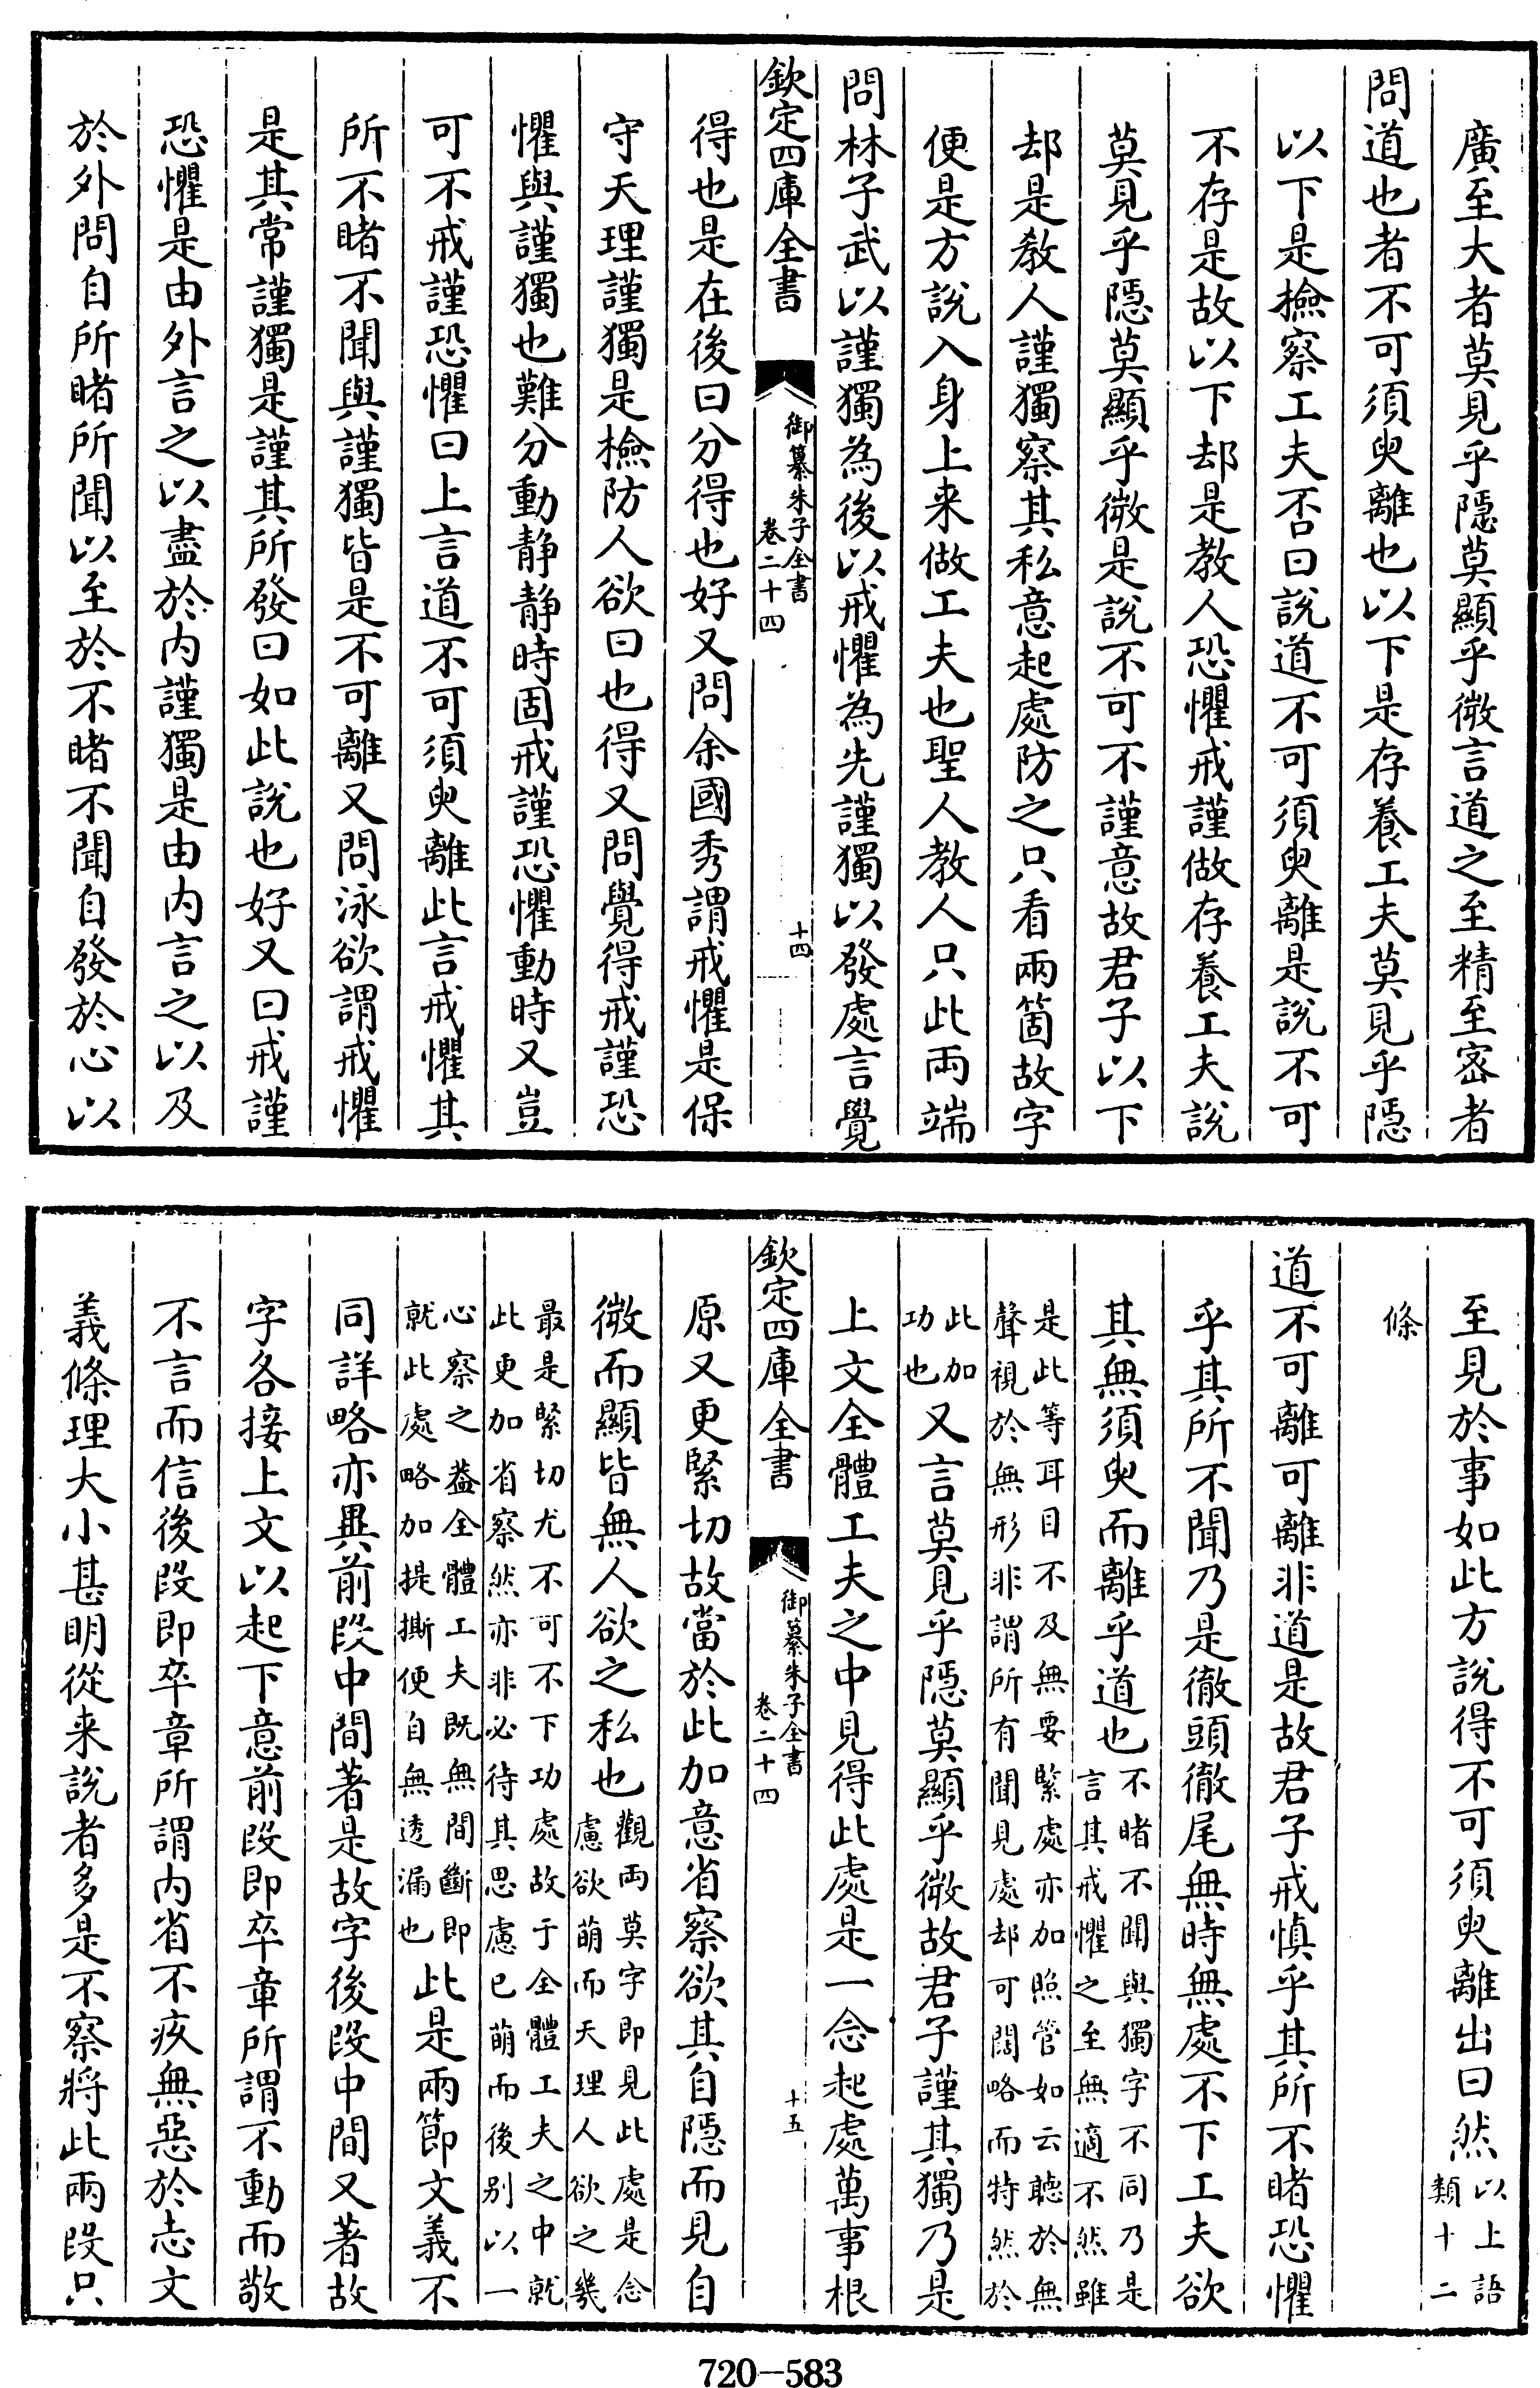 廣至大者莫見乎隱莫顯乎微言道之至精至宻者
問道也者不可須臾離也以下是存養工夫莫見乎隱
以下是檢察工夫否曰說道不可須臾離是說不可
不存是故以下却是教人恐懼戒謹做存養工夫說
莫見乎隱莫顯乎微是說不可不謹意故君子以下
却是教人謹獨察其私意起處防之只看兩箇故字
便是方說入身上来做工夫也聖人教人只此兩端
問林子武以謹獨為後以戒懼為先謹獨以發處言覺
欽定四庫全書
御纂朱子全書
卷二十四
十四
得也是在後曰分得也好又問余國秀謂戒懼是保
守天理謹獨是檢防人欲曰也得又問覺得戒謹恐
懼與謹獨也難分動静静時固戒謹恐懼動時又豈
可不戒謹恐懼曰上言道不可須臾離此言戒懼其
所不睹不聞與謹獨皆是不可離又問泳欲謂戒懼
是其常謹獨是謹其所發曰如此說也好又曰戒謹
恐懼是由外言之以盡於内謹獨是由内言之以及
於外問自所睹所聞以至於不睹不聞自發於心以
至見於事如此方說得不可須臾離出曰然以上語
類十二
條
道不可離可離非道是故君子戒慎乎其所不睹恐懼
乎其所不聞乃是徹頭徹尾無時無處不下工夫欲
其無須臾而離乎道也不睹不聞與獨字不同乃是
言其戒懼之至無適不然雖
是此等耳目不及無要緊處亦加照管如云聽於無
聲視於無形非謂所有聞見處却可闊略而特然於
此加
功也又言莫見乎隱莫顯乎微故君子謹其獨乃是
上文全體工夫之中見得此處是一念起處萬事根
欽定四庫全書
御纂朱子全書
卷二十四
十五
原又更緊切故當於此加意省察欲其自隱而見自
微而顯皆無人欲之私也觀兩莫字即見此處是念
慮欲萌而天理人欲之幾
最是緊切尤不可不下功處故于全體工夫之中就
此更加省察然亦非必待其思慮已萌而後别以一
心察之葢全體工夫既無間斷即
就此處略加提撕便自無透漏也此是兩節文義不
同詳略亦異前段中間著是故字後段中間又著故
字各接上文以起下意前段即卒章所謂不動而敬
不言而信後段即卒章所謂内省不疚無惡於志文
義條理大小甚明從来說者多是不察將此兩段只
720-583